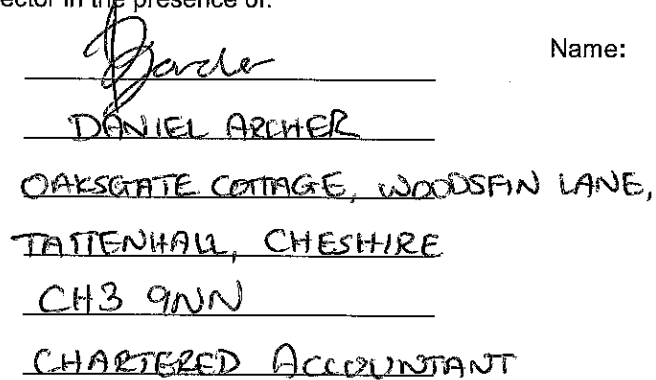 ector in the presence of:
Name:
DANIEL ARCHER
OAKSGATE COTTAGE, WOODSFIN LANE,
TATTENHALL, CHESHIRE
CH3 9NN
CHARTERED ACCOUNTANT